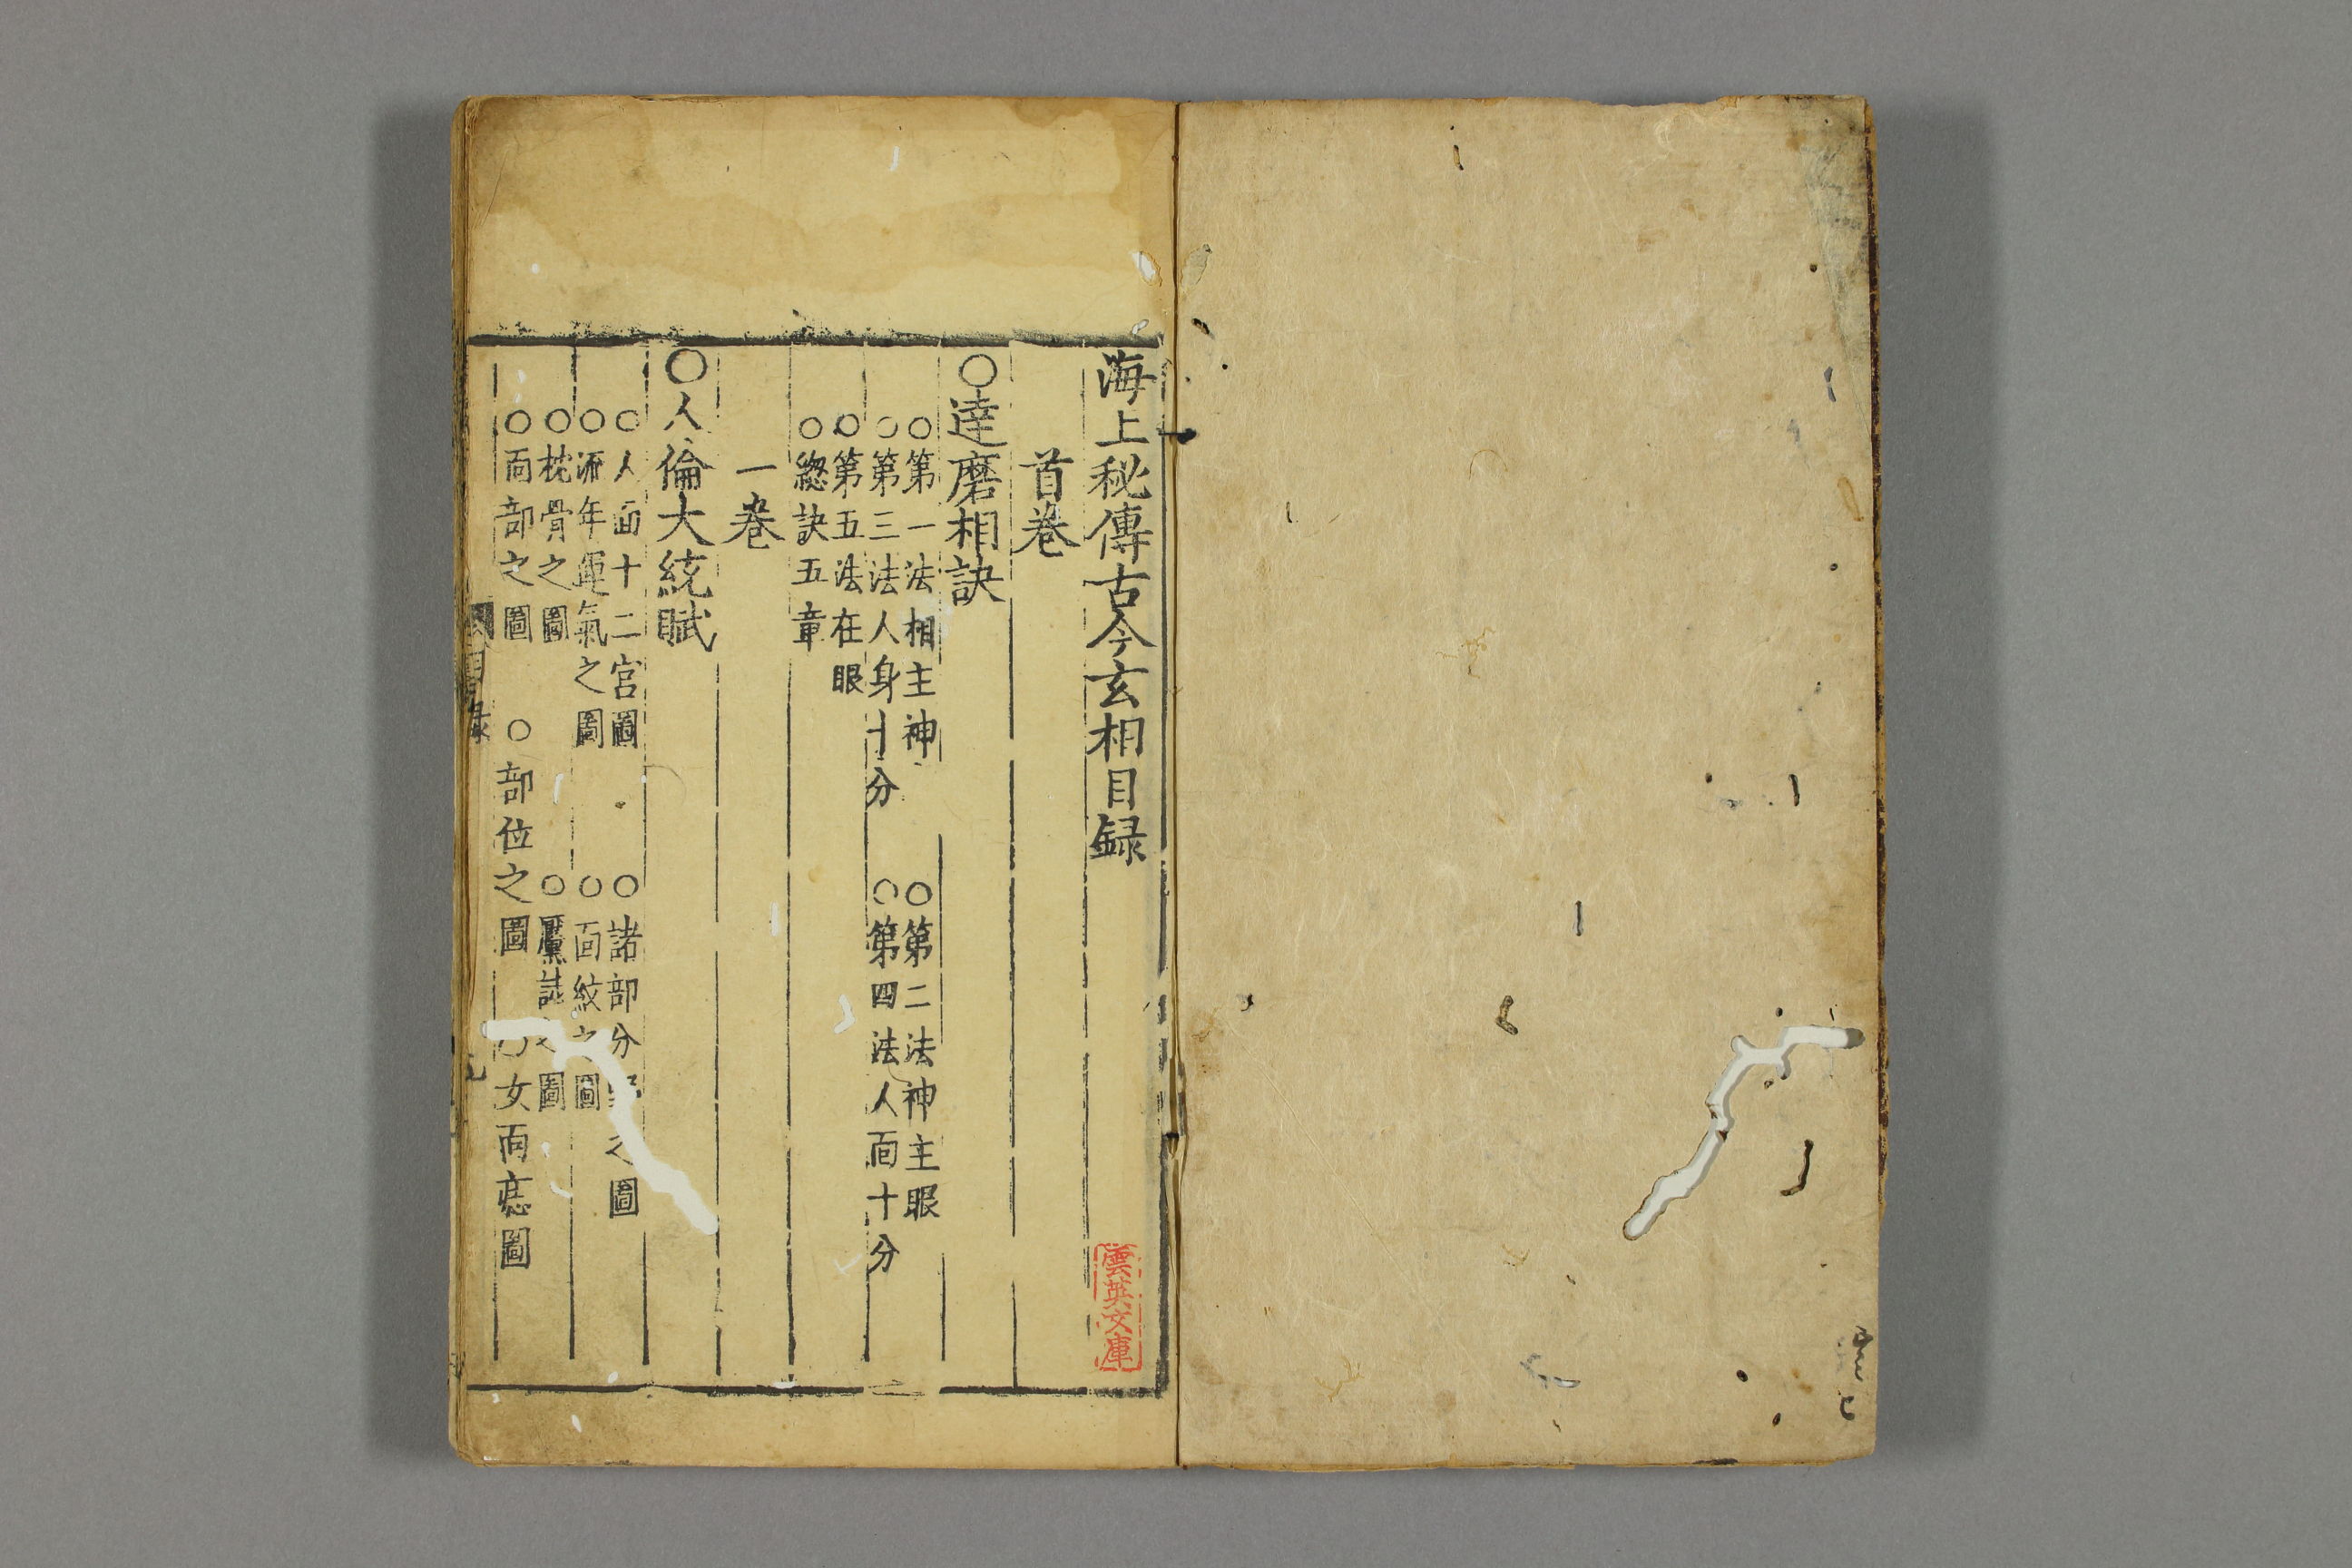 海上秘傳古今玄相目録
首巻
○達磨相訣
○第一法相主神 ○第二法神主眼
○第三法人身十分 ○第四法人面十分
○第五法在眼
○總訣五章
一巻
○人倫大統賦
○人面十二宮圖 ○諸部分之圖
○流年運氣之圖 ○面紋之圖
○枕骨之圖 ○黶誌之圖
○面部之圖 ○部位之圖 ○女面痣圖
目録
雲英文庫